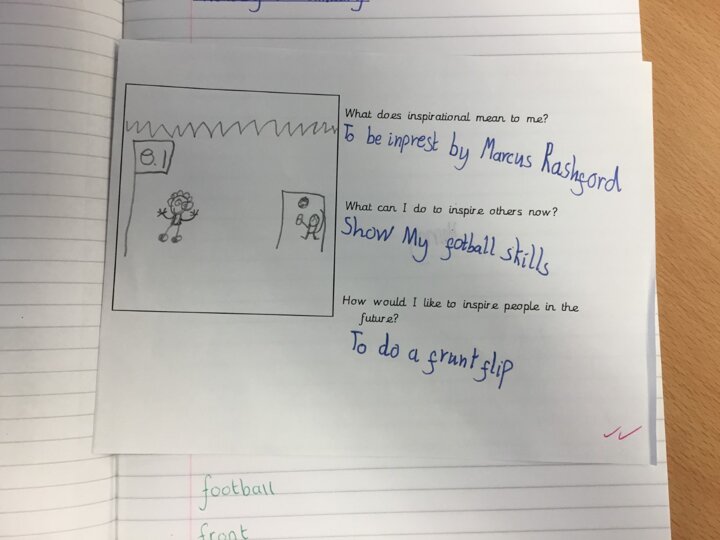 What does inspirational mean to me?
To be inprest by Marcus Rashford
8.1
What can I do to inspire others now?
Show My fotball skills
How would I like to inspire people in the
future?
To do a frunt flip
football
front